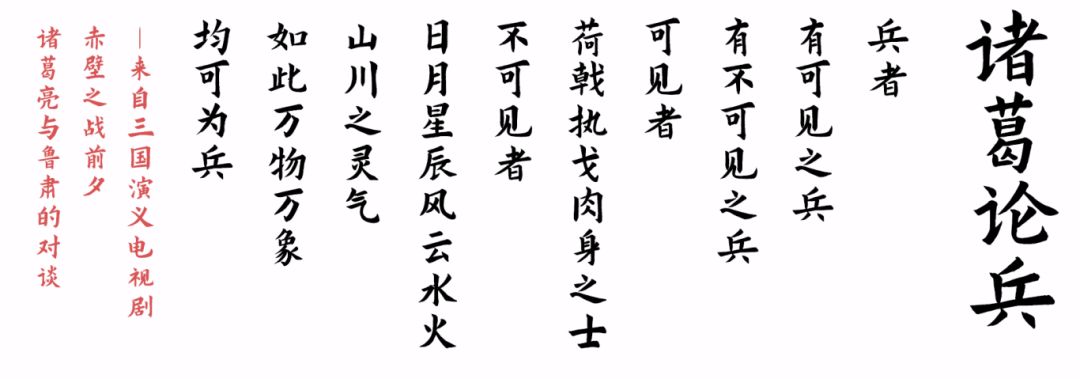 诸葛论兵
兵者
有可见之兵
有不可见之兵
可见者
荷戟执戈肉身之士
不可见者
日月星辰风云水火
山川之灵气
如此万物万象
均可为兵
—来自三国演义电视剧
赤壁之战前夕
诸葛亮与鲁肃的对谈